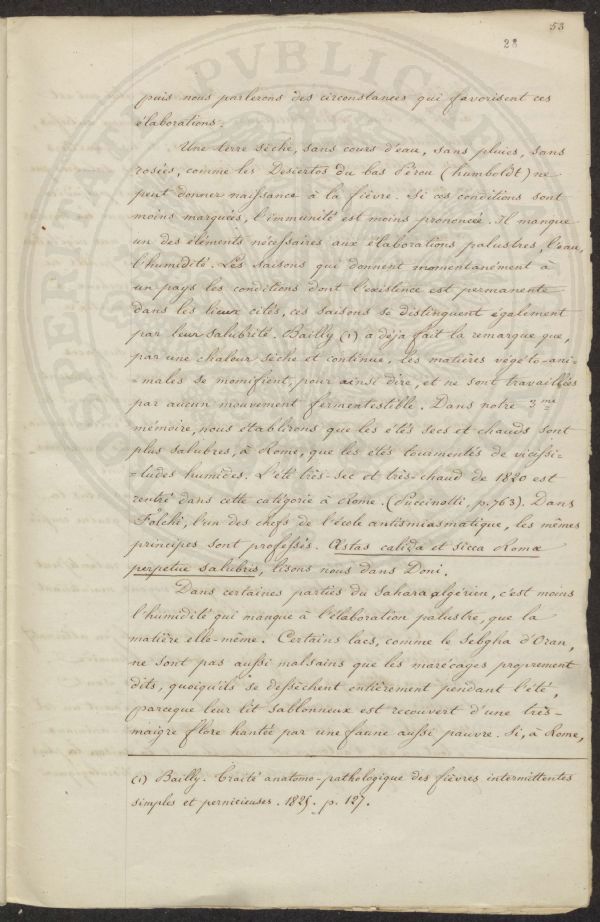 53
28
puis nous parlerons des circonstances qui favorisent ces
élaborations.
Une terre sèche, sans cours d'eau, sans pluies, sans
rosées, comme les Desiertos du bas Pérou (humboldt) ne
peut donner naissance à la fièvre. Si ces conditions sont
moins marquées, l'immunité est moins prononcée. Il manque
un des éléments nécessaires aux élaborations palustres, l'eau,
l'humidité. Les saisons qui donnent momentanément à
un pays les conditions dont l'existence est permanente
dans les lieux cités, ces saisons se distinguent également
par leur salubrité. Bailly (1) a déja fait la remarque que,
par une chaleur sèche et continue, les matières végéto-ani-
-males se momifient, pour ainsi dire, et ne sont travaillées
par aucun mouvement fermentestible. Dans notre 3me
mémoire, nous établirons que les étés secs et chauds sont
plus salubres, à Rome, que les étés tourmentés de vicissi-
-tudes humides. L'été très-sec et très-chaud de 1820 est
rentré dans cette catégorie à Rome. (Puccinotti, p. 763). Dans
Folchi, l'un des chefs de l'école antismiasmatique, les mêmes
principes sont professés. Æstas calida et sicca Romæ
perpetue salubris, lisons nous dans Doni.
Dans certaines parties du Sahara algérien, c'est moins
l'humidité qui manque à l'élaboration palustre, que la
matière elle-même. Certains lacs, comme le Sebgha d'Oran,
ne sont pas aussi malsains que les marécages proprement
dits, quoiqu'ils se dessèchent entièrement pendant l'été,
parceque leur lit sablonneux est recouvert d'une très-
maigre flore hantée par une faune aussi pauvre. Si, à Rome,
(1) Bailly. Traité anatomo-pathologique des fièvres intermittentes
simples et pernicieuses. 1825. p. 127.